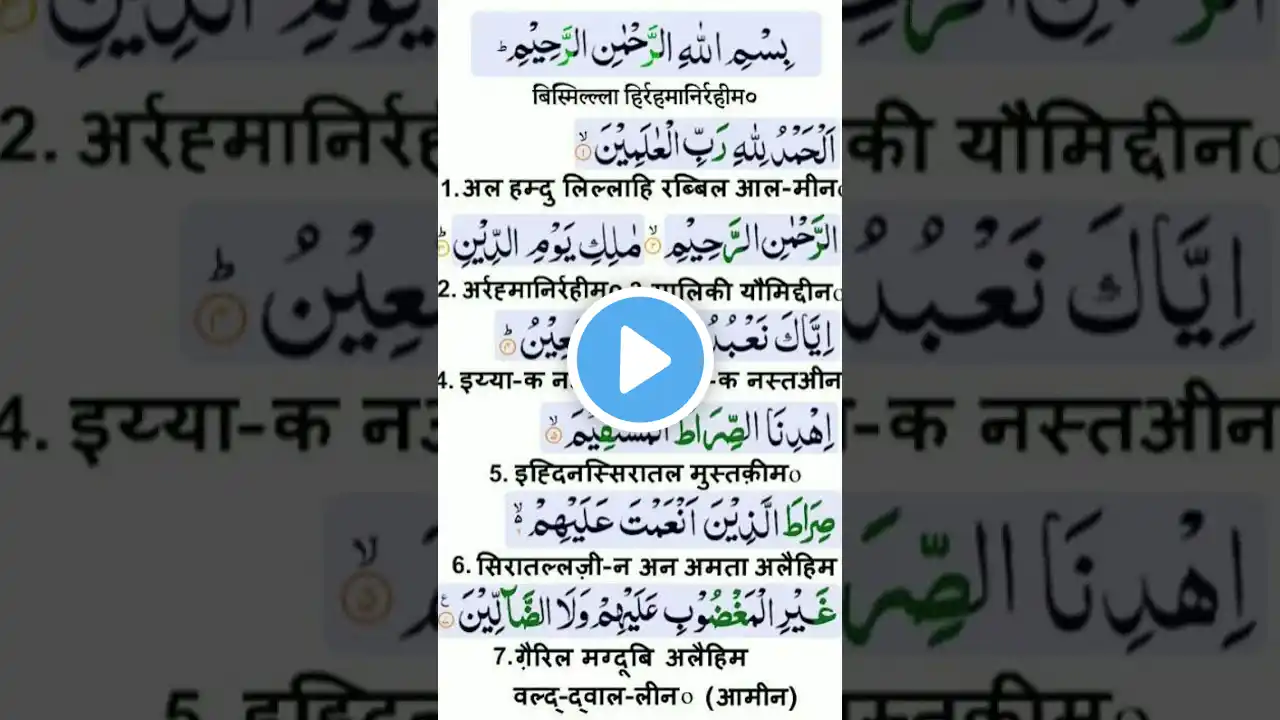 بِسْمِ اللهِ الرَّحْمٰنِ الرَّحِيْمِ ؕ
बिस्मिल्ल्ला हिर्रहमानिर्रहीम०
اَلْحَمْدُ لِلّٰهِ رَبِّ الْعٰلَمِيْنَ ۙ
1.अल हम्दु लिल्लाहि रब्बिल आल-मीन०
الرَّحْمٰنِ الرَّحِيْمِ ۙ مٰلِكِ يَوْمِ الدِّيْنِ ؕ
2. अर्रह्मानिर्रहीम० मालिकी यौमिद्दीन०
اِيَّاكَ نَعْبُدُ
4. इय्या-क -क नस्तअीन
اِهْدِنَا الصِّرَاطَ الْمُسْتَقِيْمَ ۙ
5. इह्दिनस्सिरातल मुस्तक़ीम०
صِرَاطَ الَّذِيْنَ اَنْعَمْتَ عَلَيْهِمْ ۙ
6. सिरातल्लज़ी-न अन अमता अलैहिम
غَيْرِ الْمَغْضُوْبِ عَلَيْهِمْ وَلَا الضَّآلِّيْنَ
7.ग़ैरिल मग्दूबि अलैहिम
वल्द्-द्वाल-लीन० (आमीन)